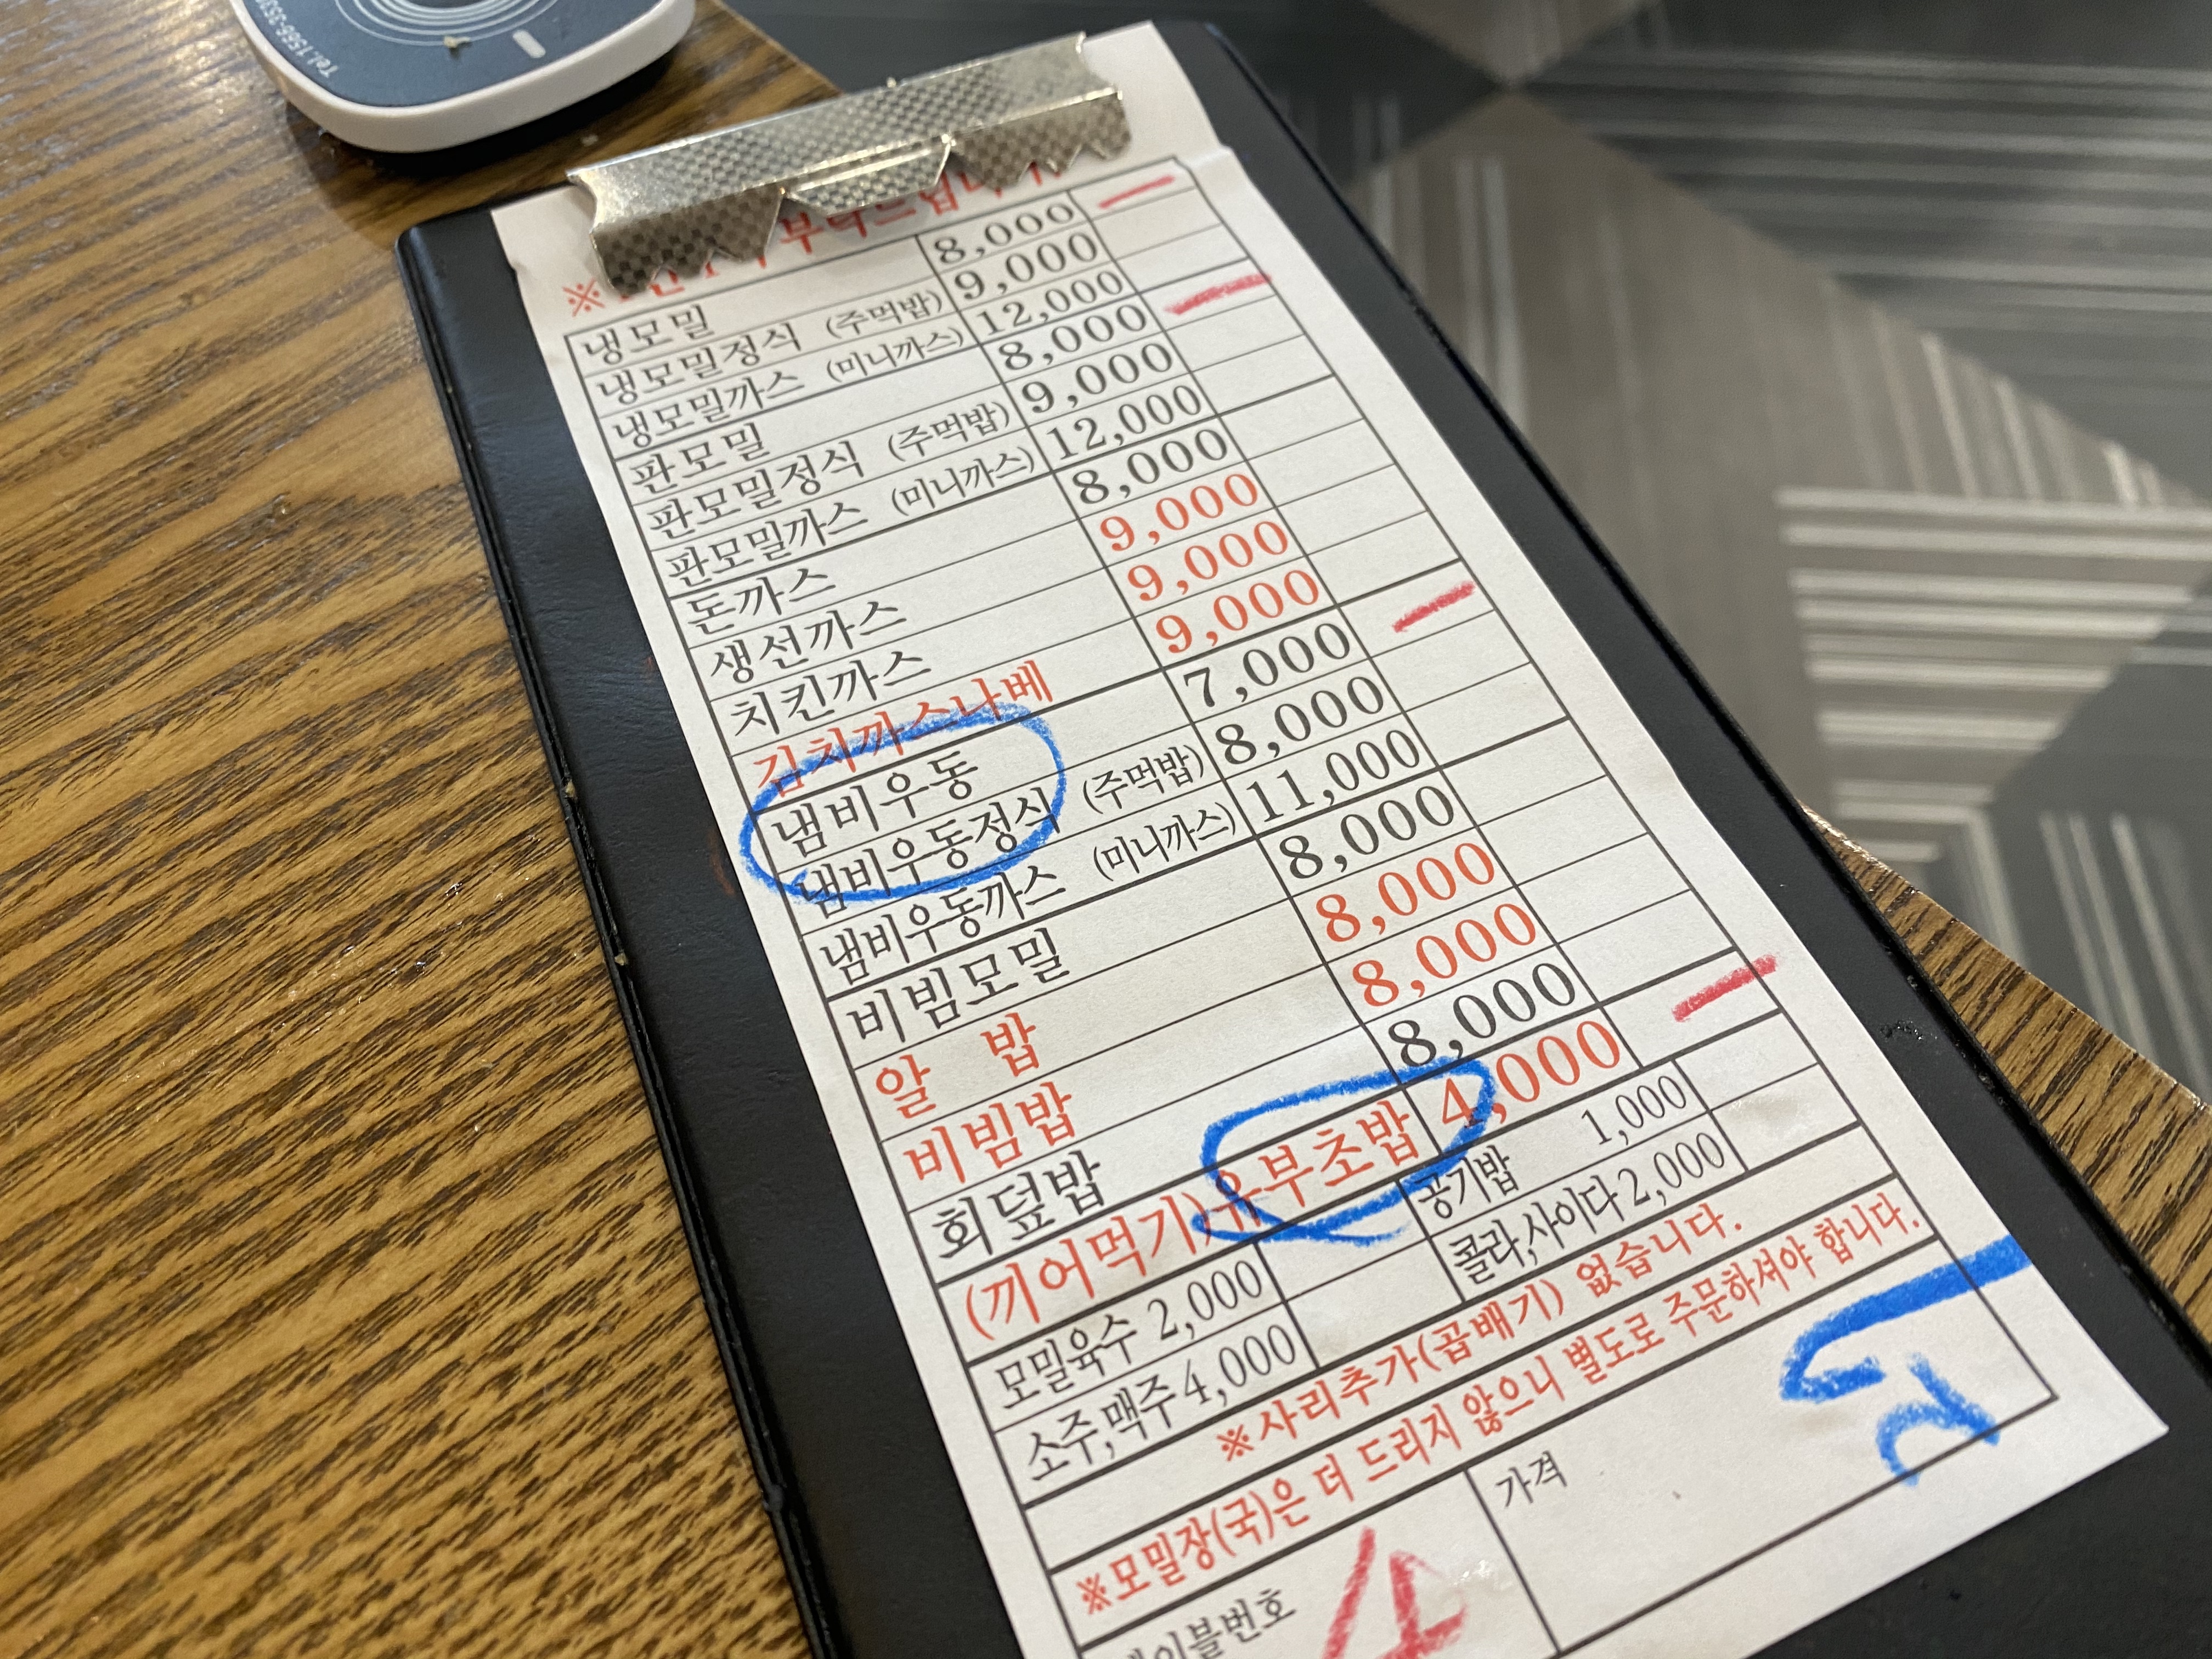 Tel.1566-
※ 부탁드립니다
냉모밀 8,000
냉모밀정식 (주먹밥) 9,000
냉모밀까스 (미니까스) 12,000
판모밀 8,000
판모밀정식 (주먹밥) 9,000
판모밀까스 (미니까스) 12,000
돈까스 8,000
생선까스 9,000
치킨까스 9,000
김치까스나베 9,000
냄비우동 7,000
냄비우동정식 (주먹밥) 8,000
냄비우동까스 (미니까스) 11,000
비빔모밀 8,000
알 밥 8,000
비빔밥 8,000
회덮밥 8,000
(끼어먹기)유부초밥 4,000
모밀육수 2,000 공기밥 1,000
소주,맥주 4,000 콜라,사이다 2,000
※사리추가(곱배기) 없습니다.
※모밀장(국)은 더 드리지 않으니 별도로 주문하셔야 합니다.
테이블번호 4 가격